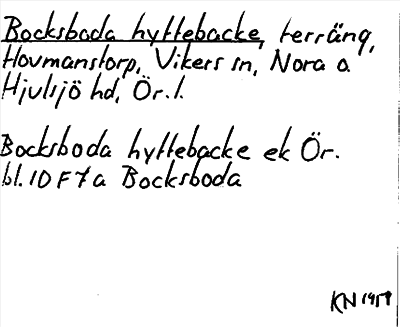 Bocksboda hyttebacke, terräng,
Hovmanstorp, Vikers sn, Nora o.
Hjulsjö hd, Ör. l.
Bocksboda hyttebacke ek Ör.
bl. 10 F 7 a Bocksboda
KN 1959